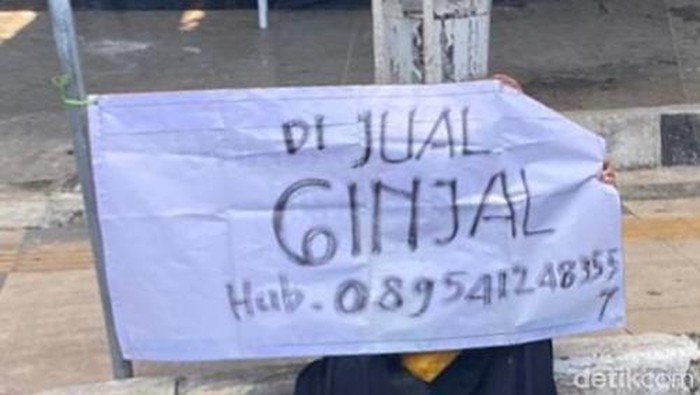 DI JUAL
GINJAL
Hub. 089541248355
7
detikcom